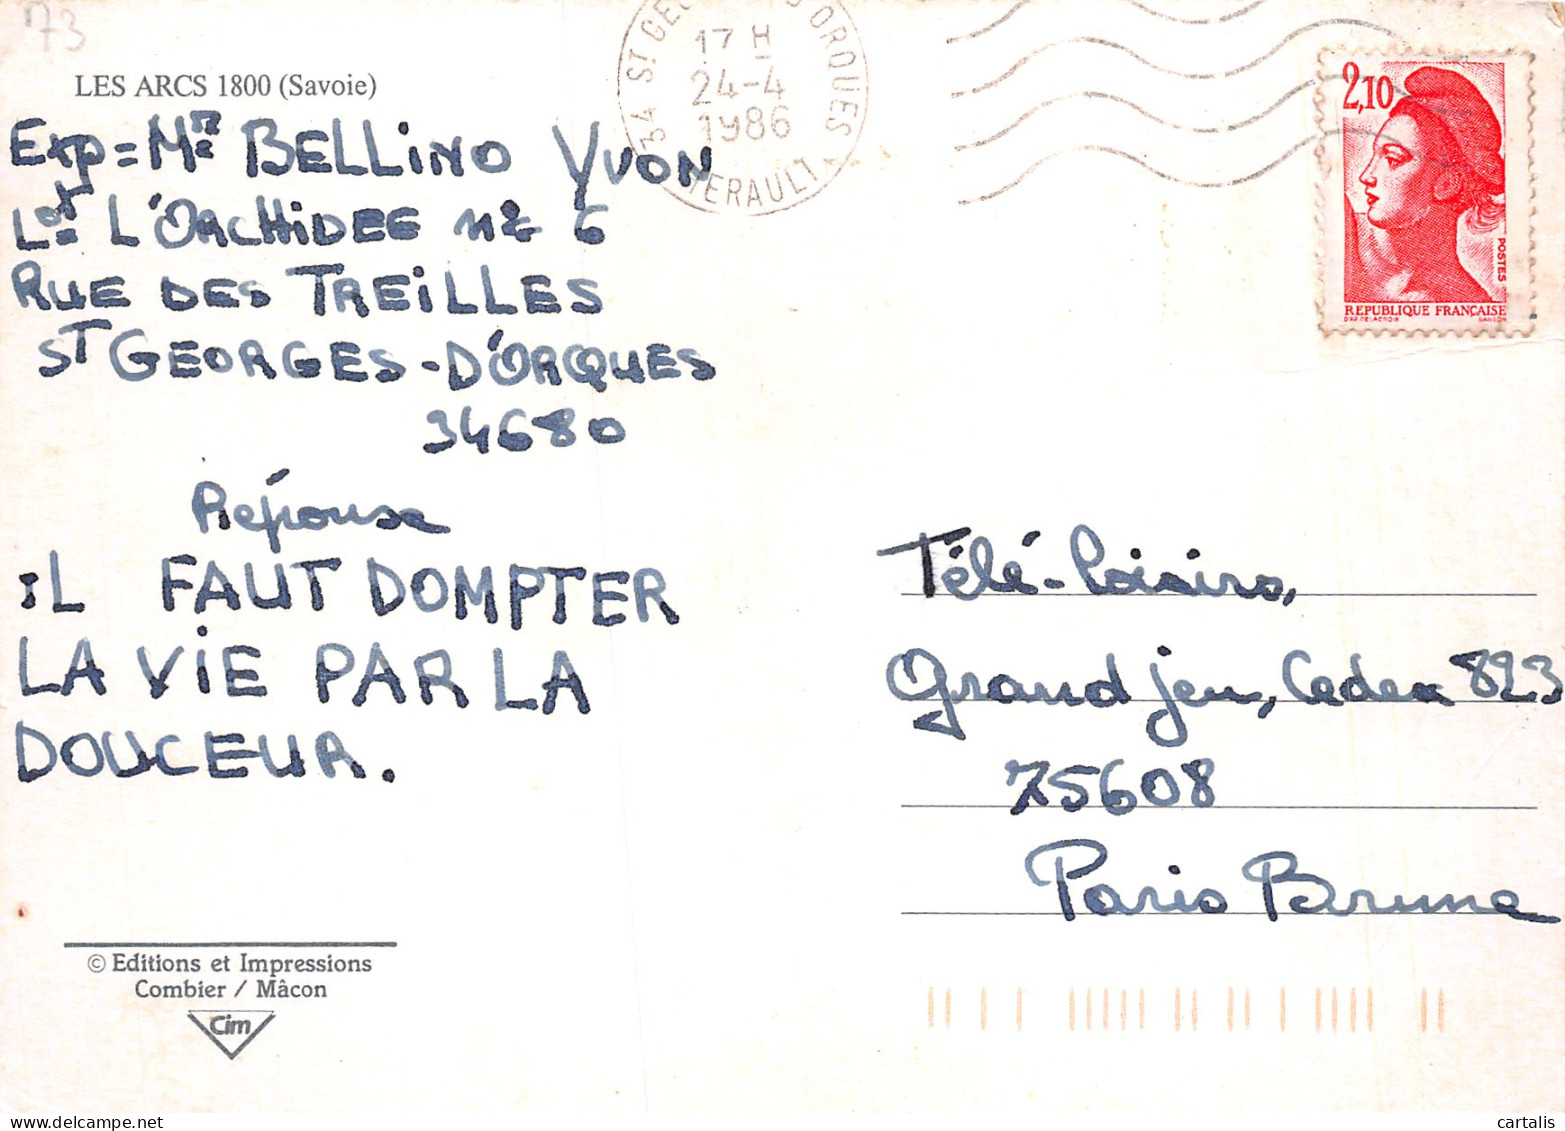 73
LES ARCS 1800 (Savoie)
Exp = Mr BELLINO YVON
Lot L'ORCHIDEE n° 6
RUE DES TREILLES
ST GEORGES-D'ORQUES
34680
Réponse
IL FAUT DOMPTER
LA VIE PAR LA
DOUCEUR.
© Editions et Impressions
Combier / Mâcon
Cim
34 ST GE D'ORQUES
17 H
24-4
1986
HERAULT
2,10
POSTES
REPUBLIQUE FRANÇAISE
Télé-Loisirs,
Grand jeu, Cedex 823
75608
Paris Brune
cartalis